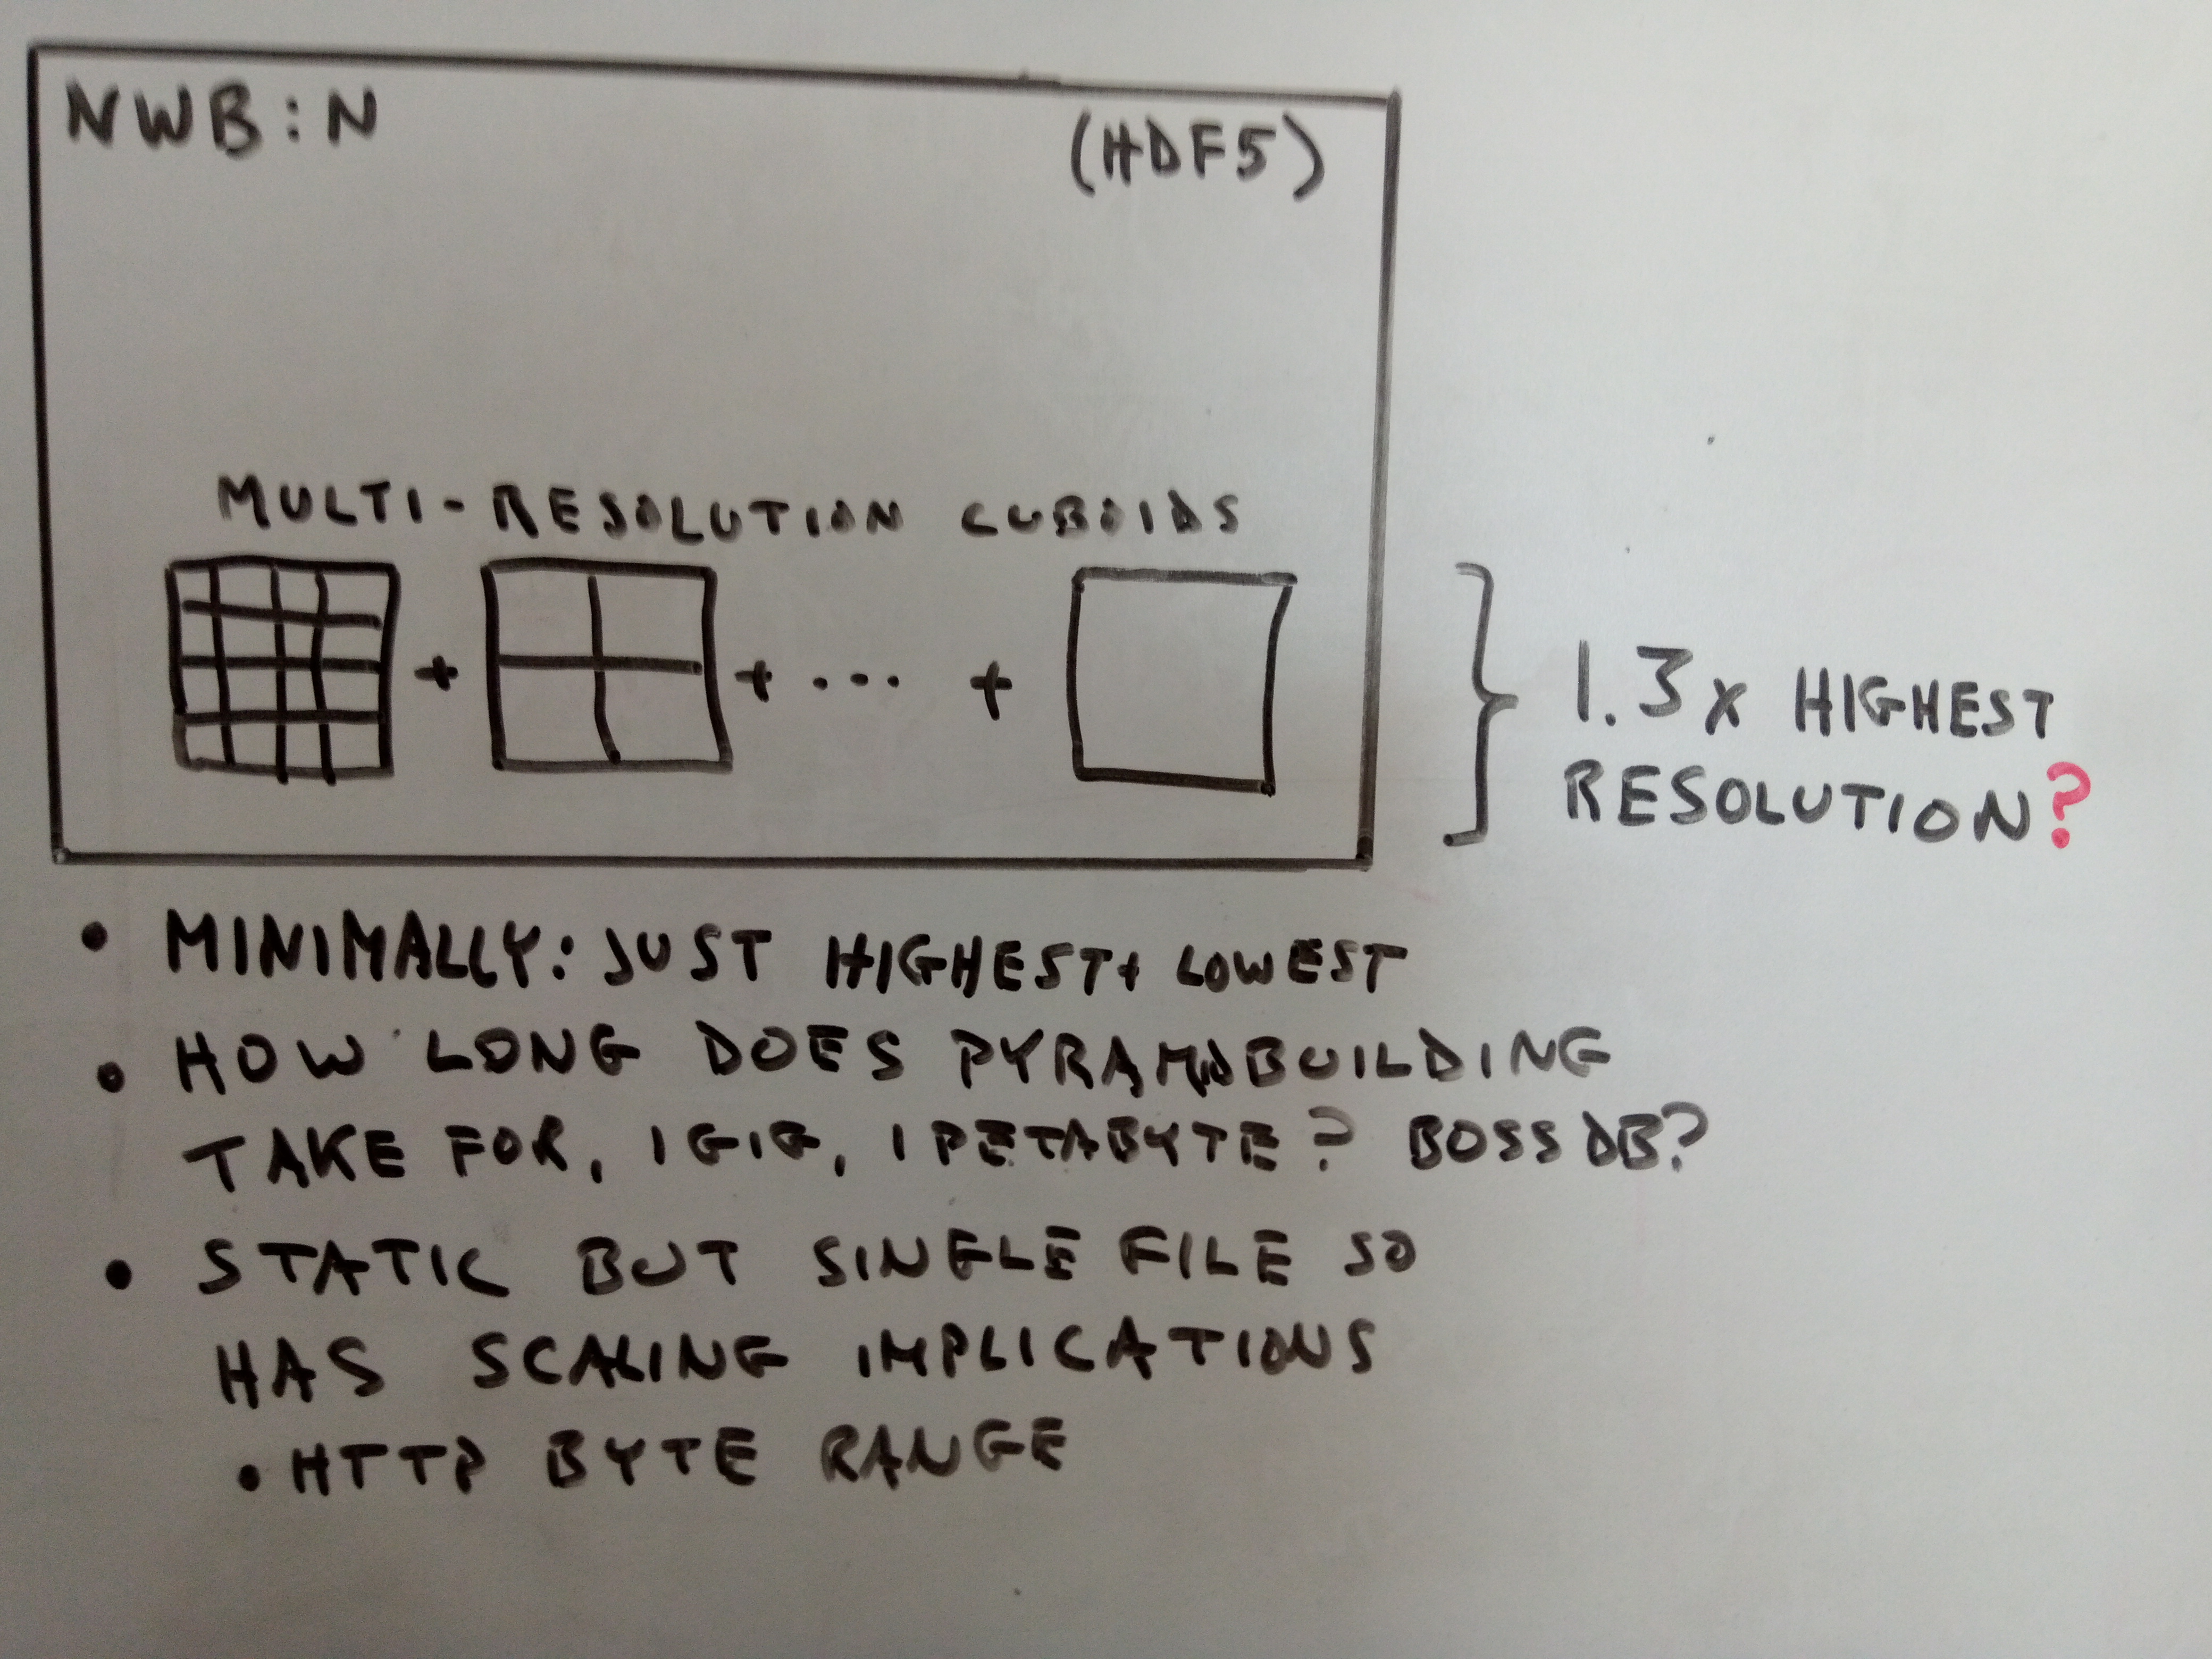 NWB:N (HDF5)
MULTI-RESOLUTION CUBOIDS
+ + ... +
1.3x HIGHEST
RESOLUTION?
• MINIMALLY: JUST HIGHEST + LOWEST
• HOW LONG DOES PYRAMIDBUILDING
TAKE FOR, 1 GIG, 1 PETABYTE? BOSSDB?
• STATIC BUT SINGLE FILE SO
HAS SCALING IMPLICATIONS
• HTTP BYTE RANGE